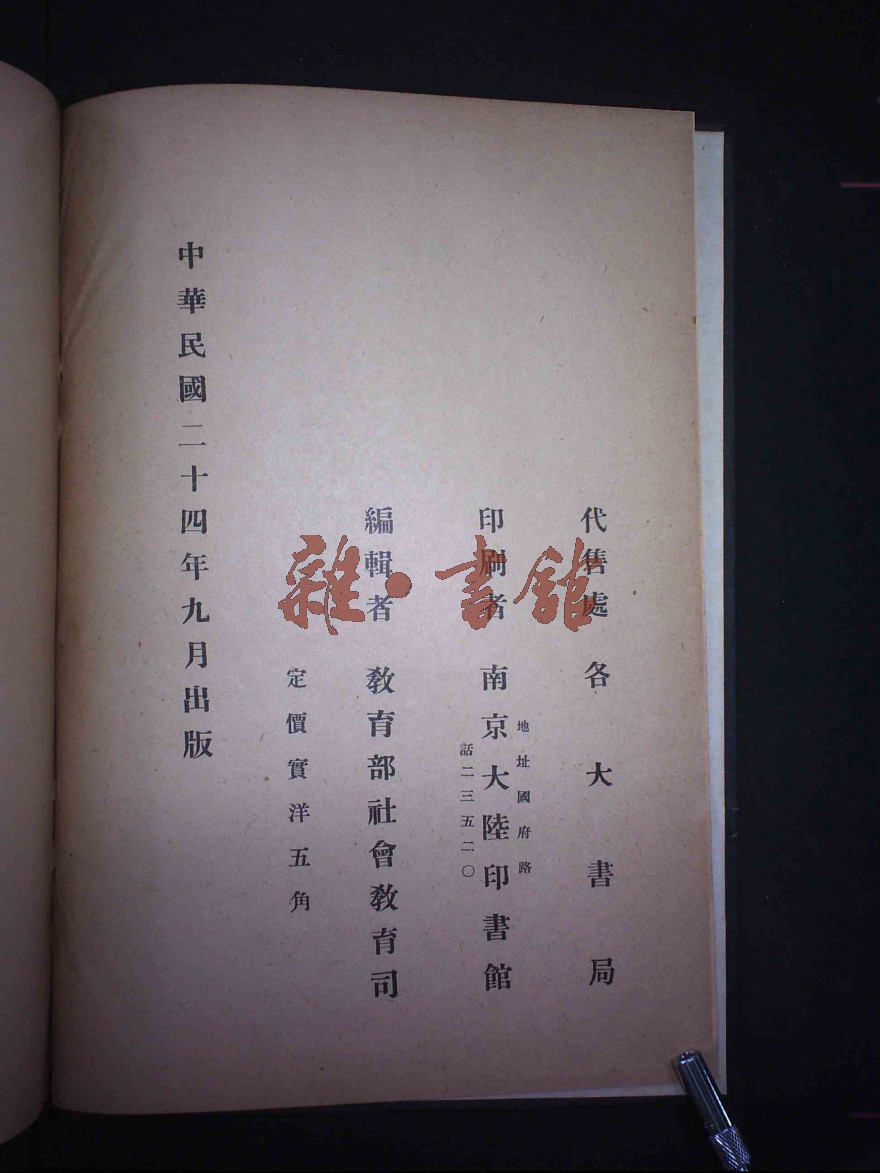 代售處 各大書局
地址國府路
印刷者 南京大陸印書館
話二三五二〇
編輯者 教育部社會教育司
定價實洋五角
中華民國二十四年九月出版
雜·書館